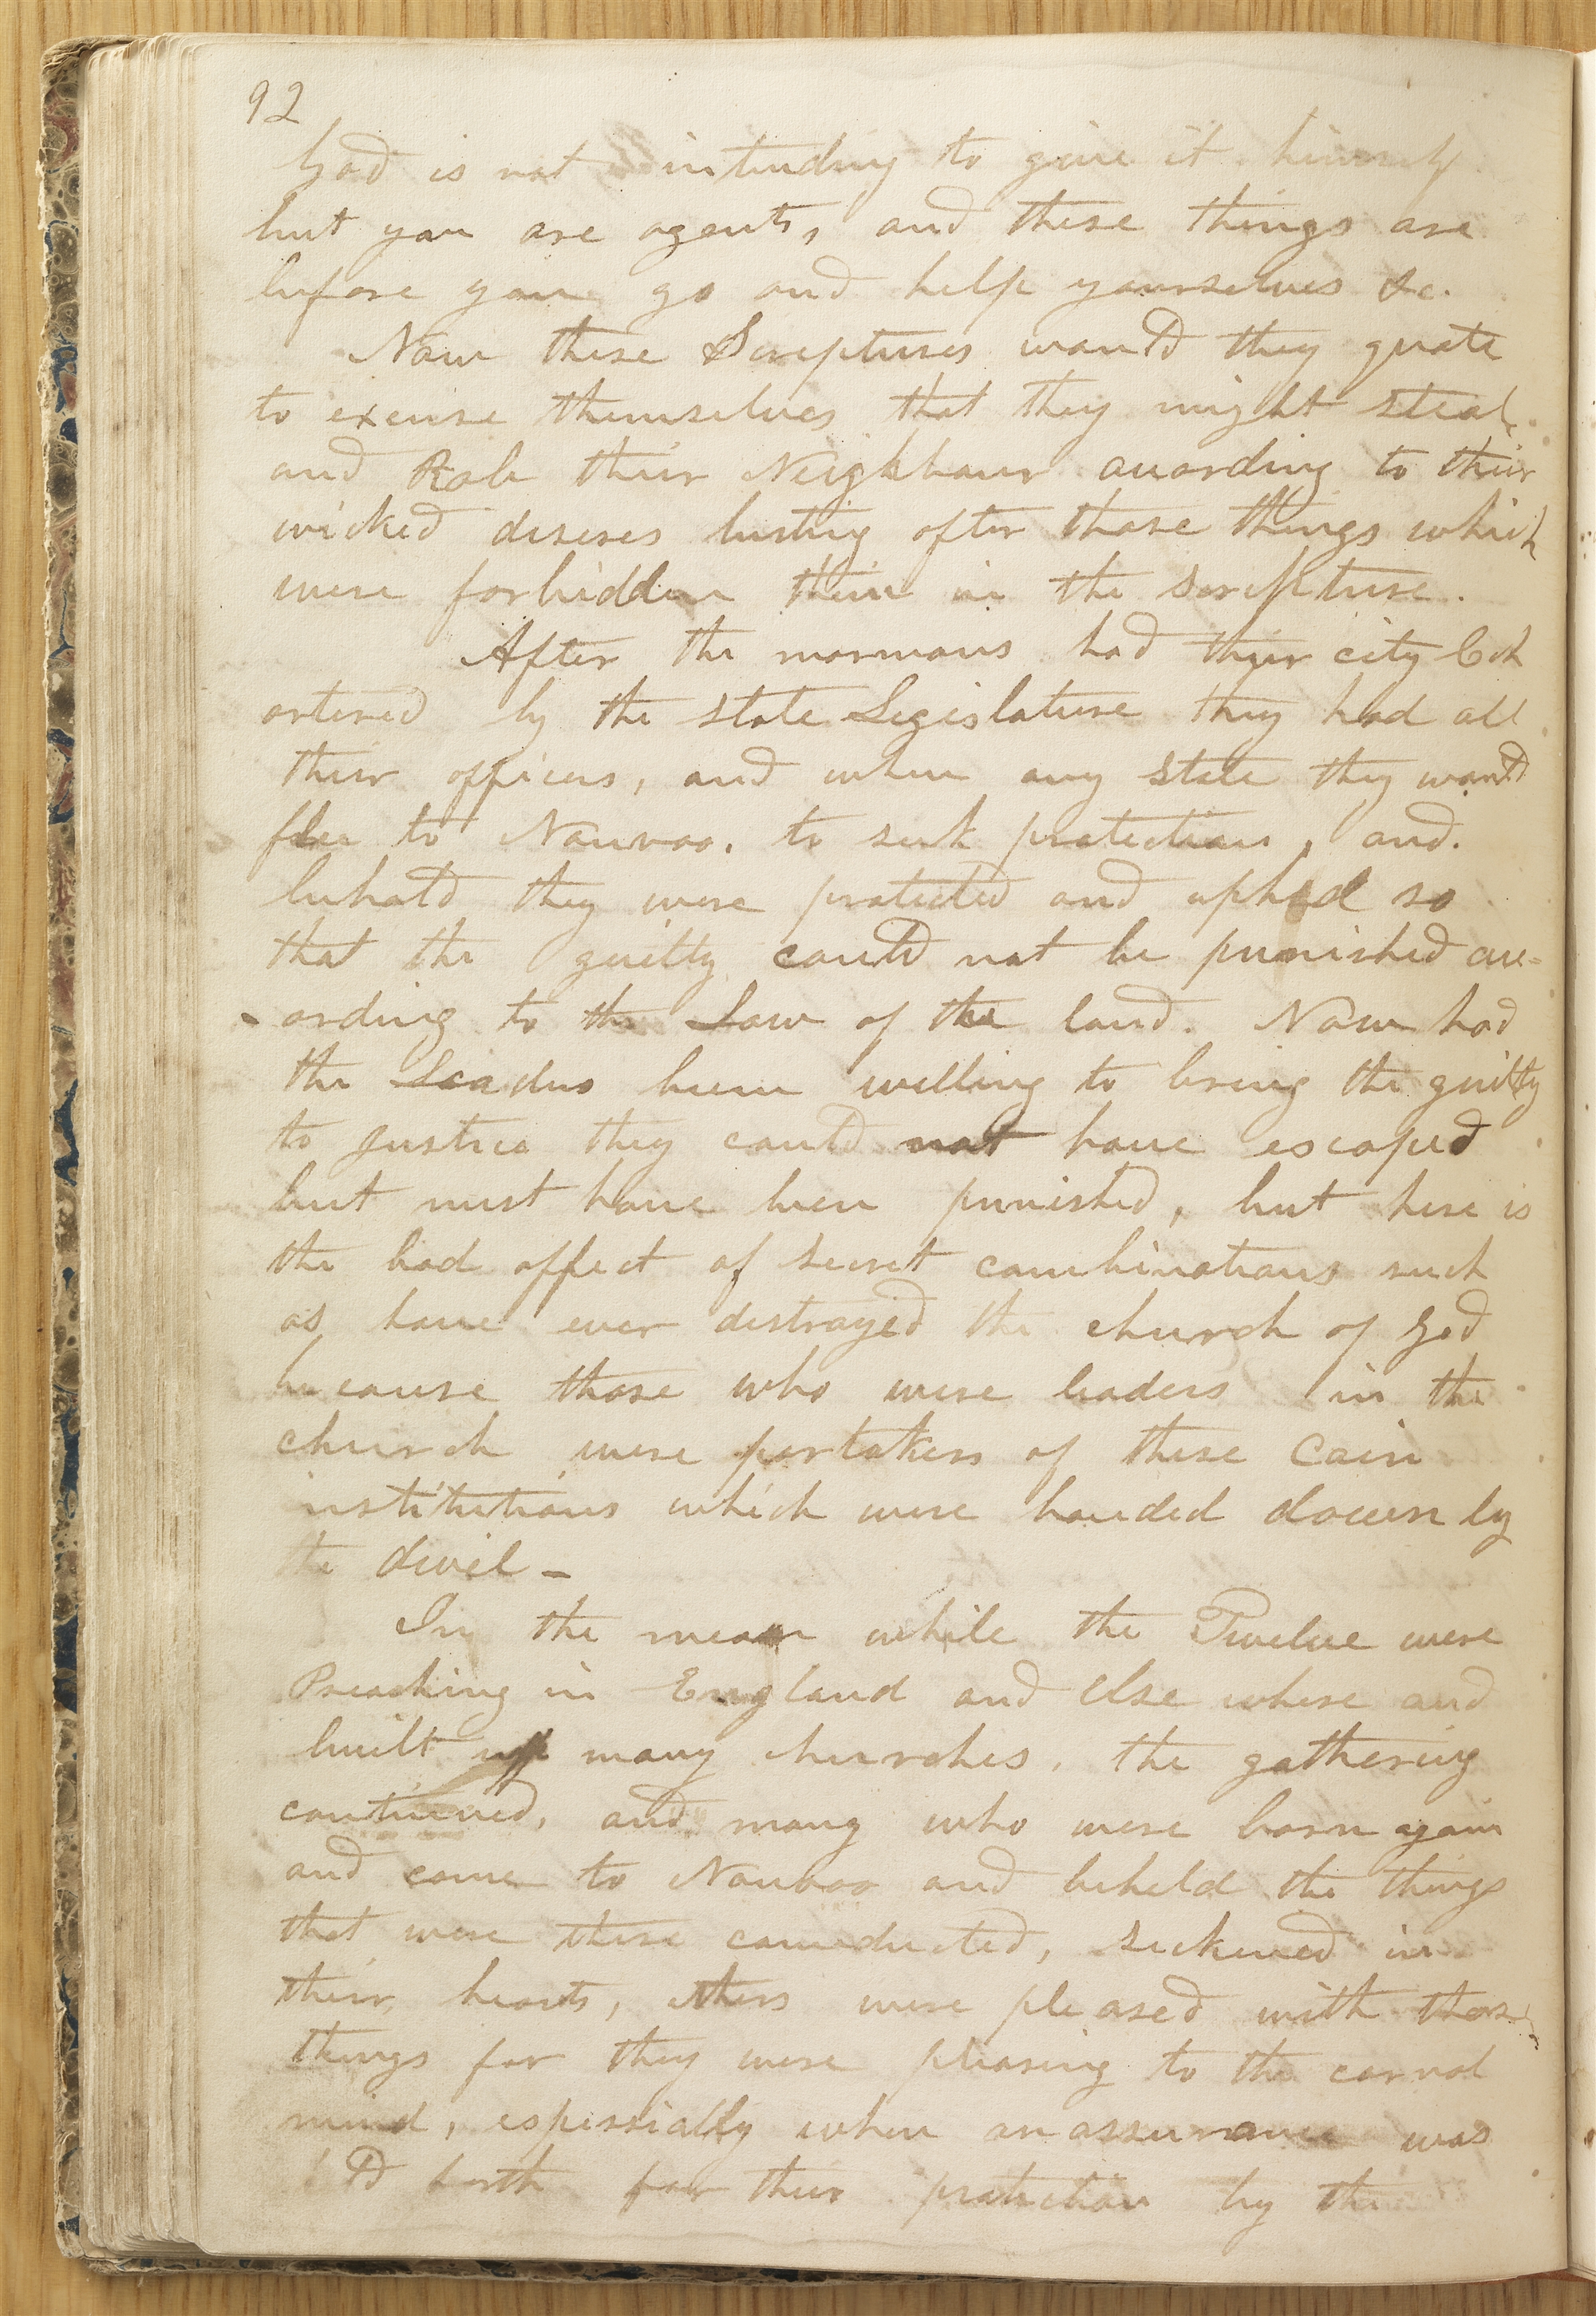 92
God is not intending to give it himself
but you are agents, and these things are
before you go and help yourselves &c.
Now these Scriptures would they quote
to excuse themselves that they might steal
and Rob their Neighbour acording to their
wicked desires lusting after those things which
were forbidden them in the scripture.
After the mormons had their city Ch
artered by the state Legislature they had all
their officers, and when any stole they would
flee to Nauvoo. to seek protection, and.
behold they were protected and uphld so
that the guilty could not be punished acc-
-ording to the Law of the land. Now had
the Leaders been willing to bring the guilty
to justice they could not have escaped
but must have been punished, but here is
the bad effect of secret combinations such
as have ever destroyed the church of God
because those who were leaders in the
church were partakers of these Cain
institutions which were handed down by
the divel -
In the mean while the Twelve were
Preaching in England and else where and
built up many churches, the gathering
continued, and many who were born again
and come to Nauvoo and beheld the things
that were there conducted, sickened in
their hearts, others were pleased with those
things for they were pleasing to the carnal
mind, espessially when an assurance was
forth for their protection by the